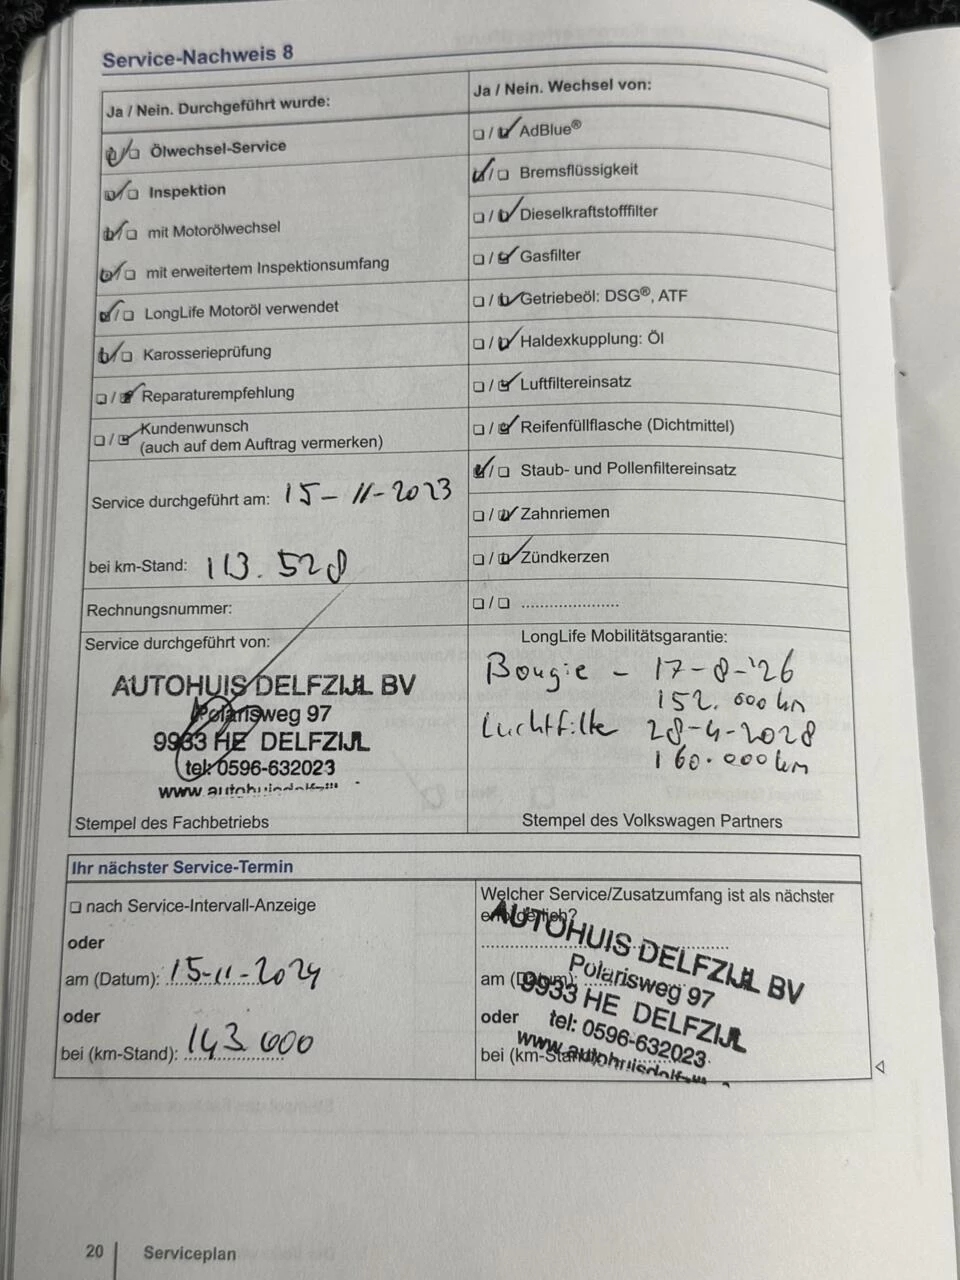 Service-Nachweis 8
Ja / Nein. Durchgeführt wurde:
Ölwechsel-Service
Inspektion
mit Motorölwechsel
mit erweitertem Inspektionsumfang
LongLife Motoröl verwendet
Karosserieprüfung
Reparaturempfehlung
Kundenwunsch
(auch auf dem Auftrag vermerken)
Service durchgeführt am: 15-11-2023
bei km-Stand: 113.528
Rechnungsnummer:
Service durchgeführt von:
AUTOHUIS DELFZIJL BV
Polarisweg 97
9933 HE DELFZIJL
tel: 0596-632023
Stempel des Fachbetriebs
Ja / Nein. Wechsel von:
AdBlue®
Bremsflüssigkeit
Dieselkraftstofffilter
Gasfilter
Getriebeöl: DSG®, ATF
Haldexkupplung: Öl
Luftfiltereinsatz
Reifenfüllflasche (Dichtmittel)
Staub- und Pollenfiltereinsatz
Zahnriemen
Zündkerzen
LongLife Mobilitätsgarantie:
Bougie - 17-8-'26
152.000 km
Luchtfilte 28-4-2028
160.000 km
Stempel des Volkswagen Partners
Ihr nächster Service-Termin
nach Service-Intervall-Anzeige
oder
am (Datum): 15-11-2024
oder
bei (km-Stand): 143.000
Welcher Service/Zusatzumfang ist als nächster
erforderlich?
am (Datum):
oder
bei (km-Stand):
AUTOHUIS DELFZIJL BV
Polarisweg 97
9933 HE DELFZIJL
tel: 0596-632023
20 | Serviceplan